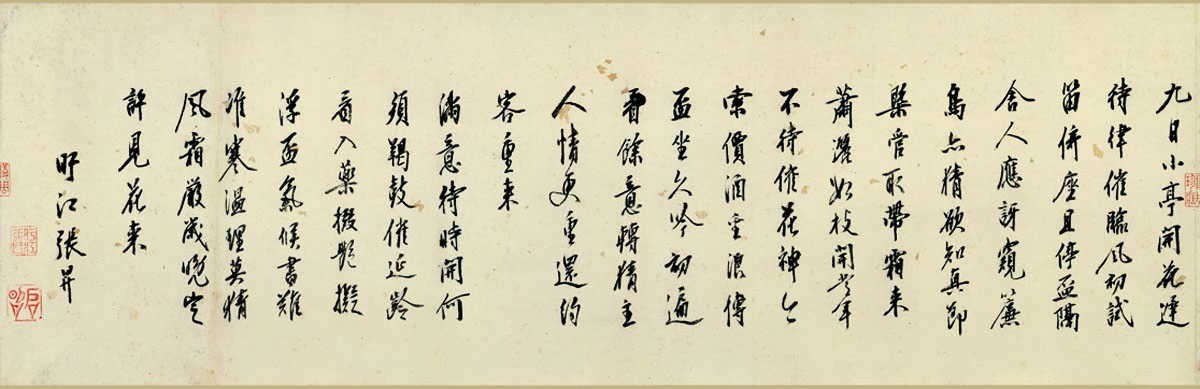 九日小亭開花遲
待律催臨風初試
笛倚座且停盃隔
舍人應訝窺簷
鳥亦猜欲知真節
槩管取帶霜来
蕭灑數枝開當年
不待催花神今
索價酒聖浪傳
盃坐久吟初遍
看餘意轉猜主
人情更重還約
客重来
滿意待時開何
須羯鼓催延齡
看入藥掇艷擬
浮盃氣候書難
准寒溫理莫猜
風霜嚴歲晚定
許見花来
盱江張昇